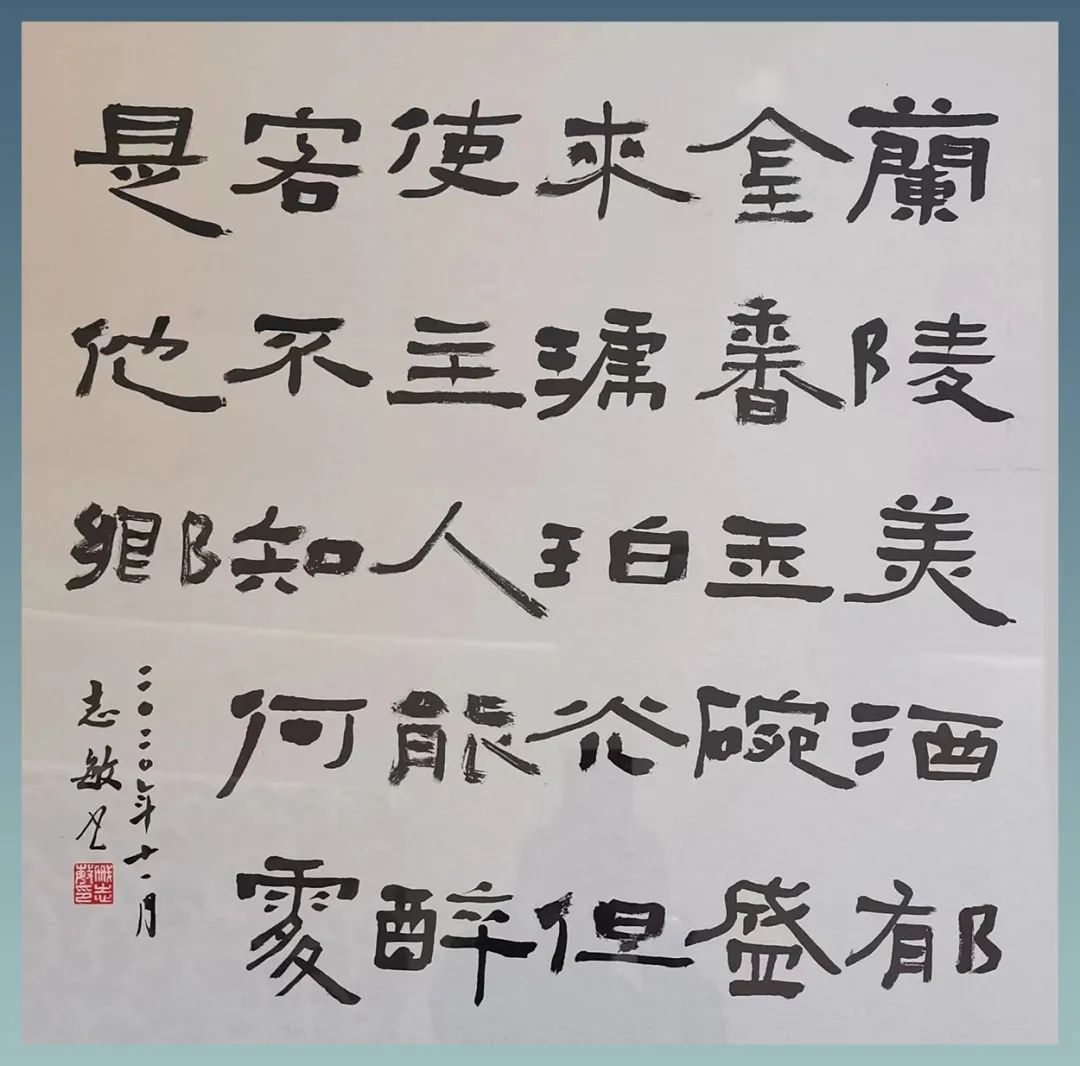 蘭陵美酒郁
金香玉碗盛
來琥珀光但
使主人能醉
客不知何處
是他鄉
二〇二〇年十一月
志敏书